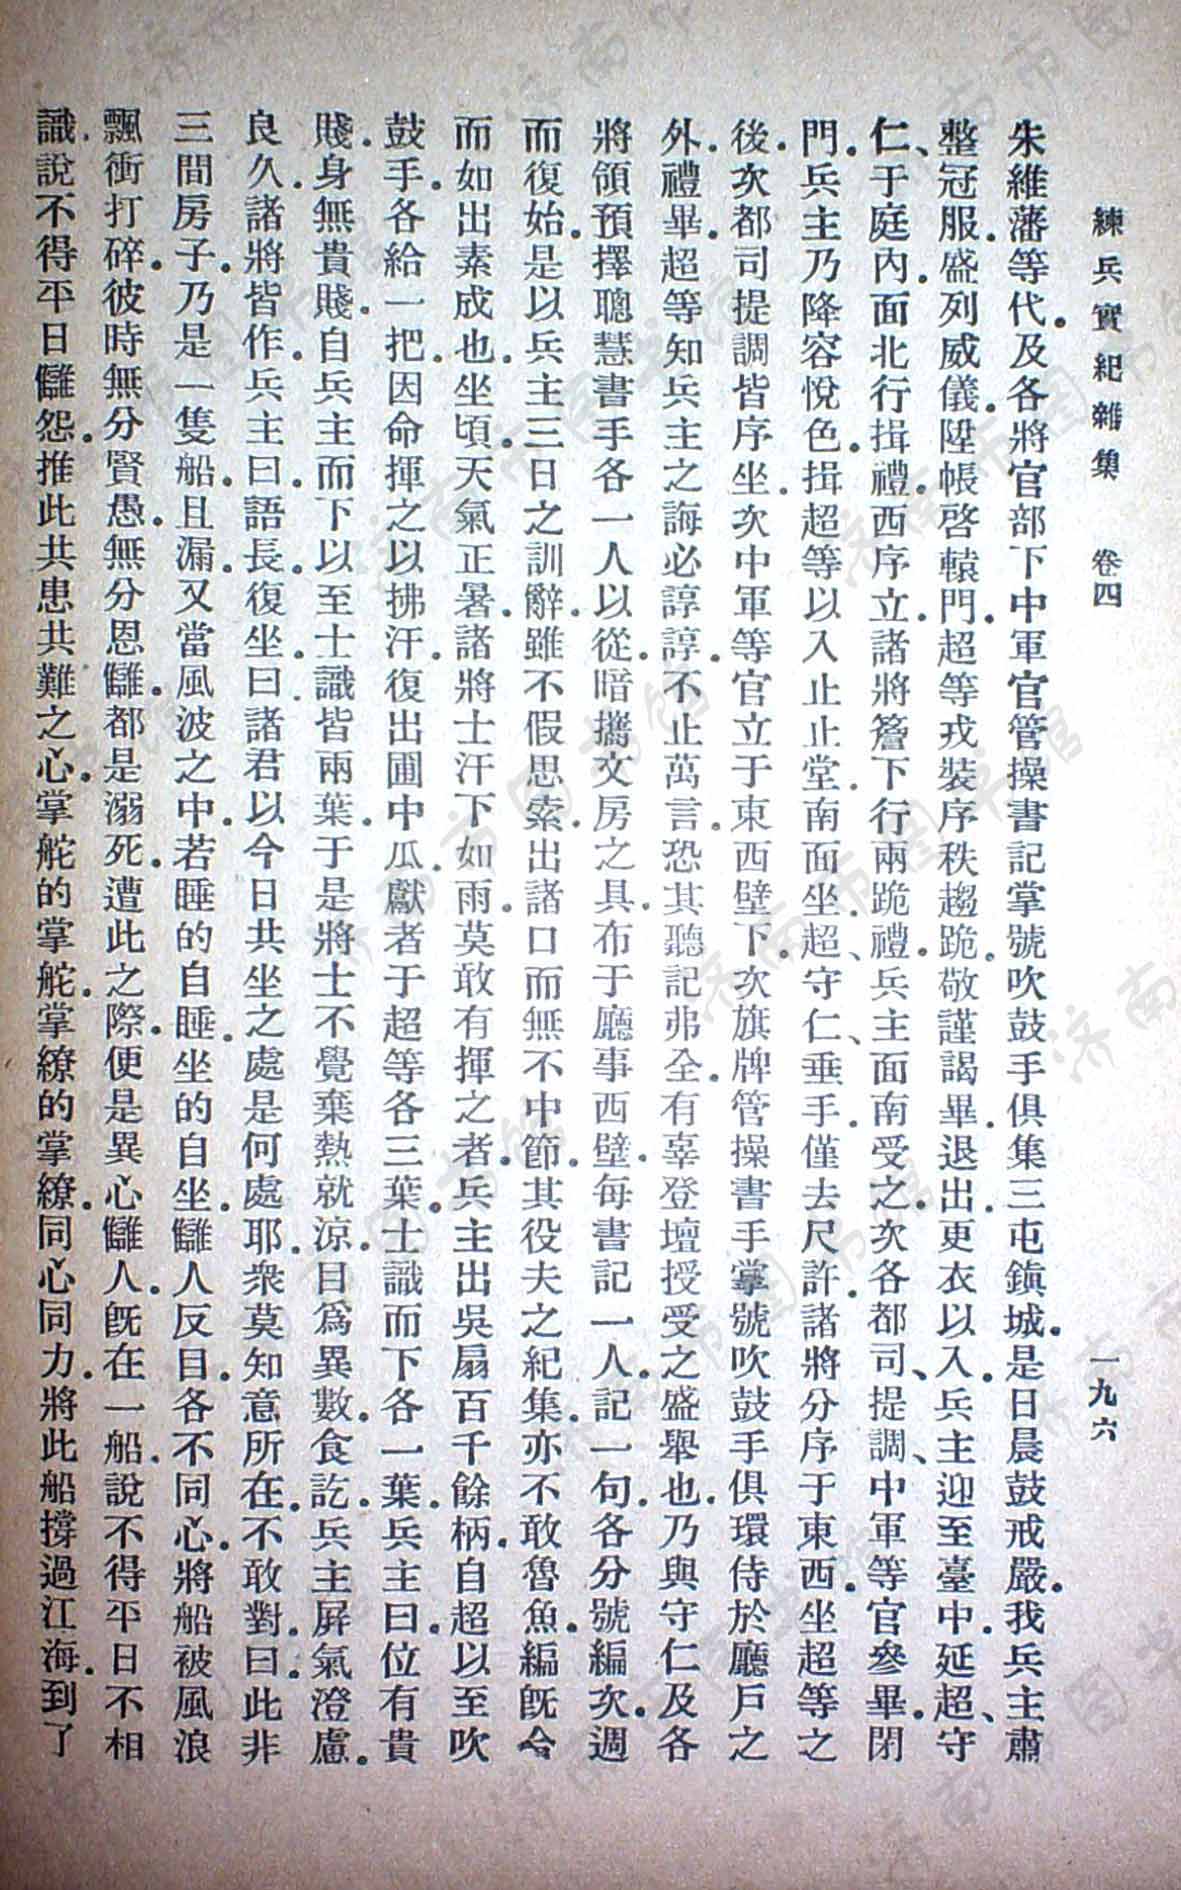 練兵實紀雜集　卷四　一九六
朱維藩等代。及各將官部下中軍官管操書記掌號吹鼓手俱集三屯鎮城。是日晨鼓戒嚴。我兵主肅
整冠服。盛列威儀。陞帳啓轅門。超等戎裝序秩趨跪。敬謹謁畢。退出更衣以入。兵主迎至臺中。延超、守
仁、于庭內。面北行揖禮。西序立。諸將簷下行兩跪禮。兵主面南受之。次各都司、提調、中軍等官參畢。閉
門。兵主乃降容悅色。揖超等以入止止堂。南面坐。超、守仁、垂手。僅去尺許。諸將分序于東西。坐超等之
後。次都司提調皆序坐。次中軍等官立于東西壁下。次旗牌管操書手掌號吹鼓手俱環侍於廳戶之
外。禮畢。超等知兵主之誨必諄諄不止萬言。恐其聽記弗全。有辜登壇授受之盛舉也。乃與守仁及各
將領預擇聰慧書手各一人以從。暗攜文房之具。布于廳事西壁。每書記一人。記一句。各分號編次。週
而復始。是以兵主三日之訓辭。雖不假思索。出諸口而無不中節。其役夫之紀集。亦不敢魯魚。編既令
而如出素成也。坐頃。天氣正暑。諸將士汗下如雨。莫敢有揮之者。兵主出吳扇百千餘柄。自超以至吹
鼓手。各給一把。因命揮之以拂汗。復出圃中瓜。獻者于超等各三葉。士識而下各一葉。兵主曰。位有貴
賤。身無貴賤。自兵主而下以至士識皆兩葉。于是將士不覺棄熱就涼。目爲異數。食訖。兵主屏氣澄慮。
良久。諸將皆作。兵主曰。語長。復坐。曰。諸君以今日共坐之處是何處耶。衆莫知意所在。不敢對。曰。此非
三間房子。乃是一隻船。且漏。又當風波之中。若睡的自睡。坐的自坐。讎人反目。各不同心。將船被風浪
飄衝打碎。彼時無分賢愚。無分恩讎。都是溺死。遭此之際。便是異心讎人。既在一船。說不得平日不相
識。說不得平日讎怨。推此共患共難之心。掌舵的掌舵。掌繚的掌繚。同心同力。將此船撐過江海。到了